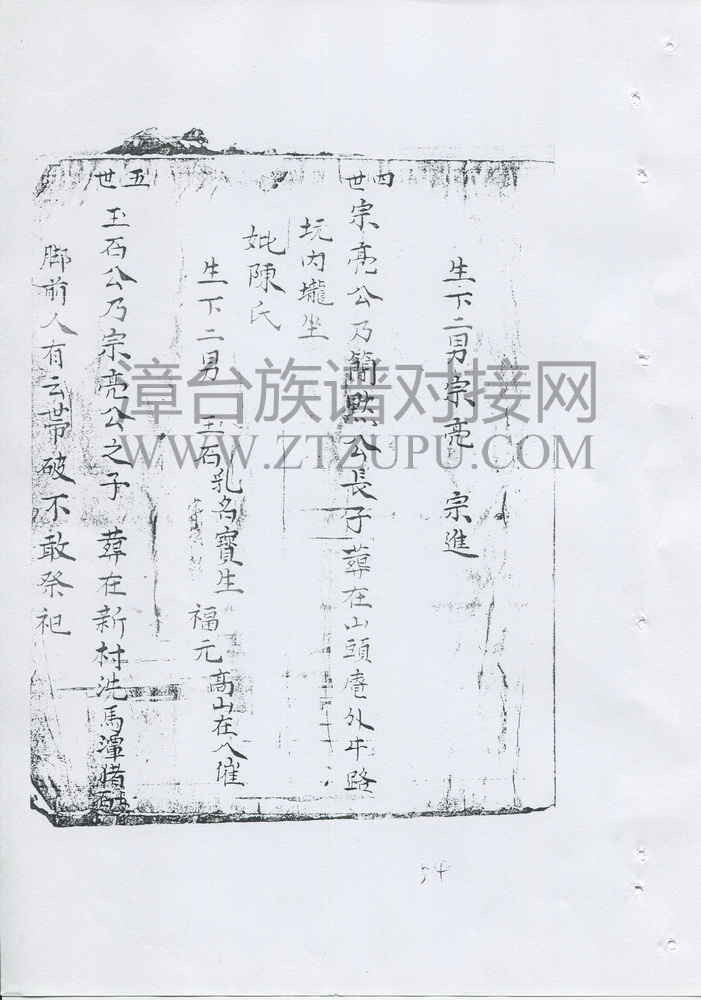 生下二男宗亮 宗進
四世
宗亮公乃簡默公長子葬在山頭庵外牛路
坑内壠坐
妣陳氏
生下二男 玉石乳名寶生 福元高山在八催
五世
玉石公乃宗亮公之子 葬在新村洗馬潭猪
脚前人有云墓破不敢祭祀
漳台族谱对接网
WWW.ZTZUPU.COM
54